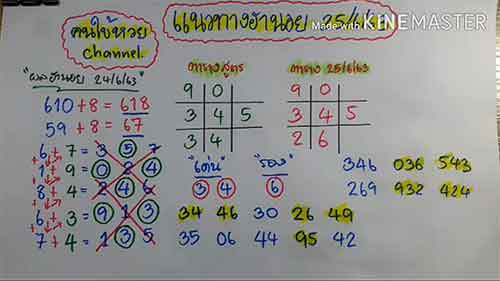 คนใบ้หวย
channel
แนวทางฮานอย 25/6/
Made with KINEMASTER
"ผลฮานอย 24/6/63"
610 + 8 = 618
59 + 8 = 67
6 + 7 = 3 5 7
1 + 9 = 0 2 4
8 + 4 = 2 4 6
6 + 3 = 9 1 3
7 + 4 = 1 3 5
ตารางสูตร
9 0
3 4 5
3 4
ตาราง 25/6/63
9 0
3 4 5
2 6
"เด่น" "รอง"
3 4 6
34 46 30 26 49
35 06 44 95 42
346 036 543
269 932 424